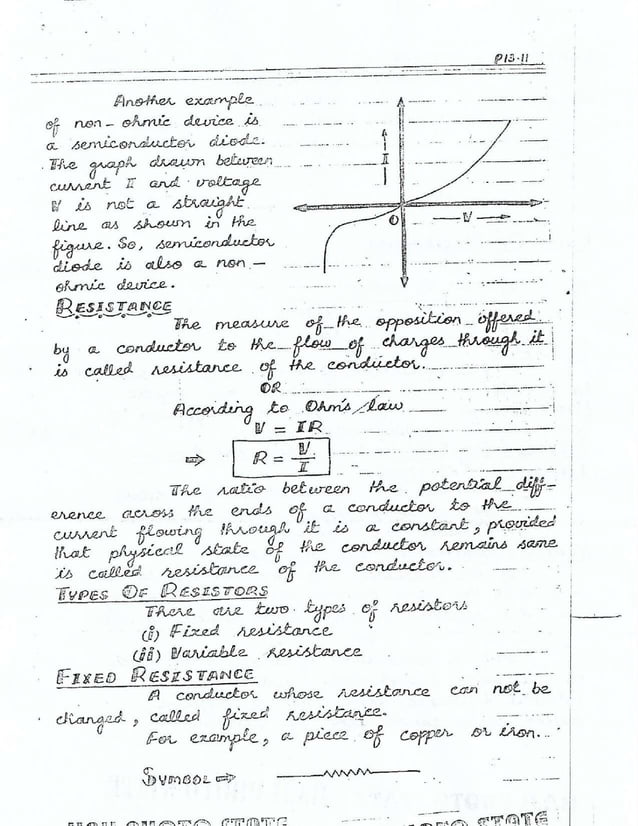 P13-11
Another example
of non-ohmic device is
a semiconductor diode.
The graph drawn between
current I and voltage
V is not a straight
line as shown in the
figure. So, semiconductor
diode is also a non-
ohmic device.
I
O
V
RESISTANCE
The measure of the opposition offered
by a conductor to the flow of charges through it
is called resistance of the conductor.
OR
According to Ohm's law
V = IR
⇒ R = V/I
The ratio between the potential diff-
erence across the ends of a conductor to the
current flowing through it is a constant, provided
that physical state of the conductor remains same
is called resistance of the conductor.
TYPES OF RESISTORS
There are two types of resistors
(i) Fixed resistance
(ii) Variable resistance
FIXED RESISTANCE
A conductor whose resistance can not be
changed, called fixed resistance.
For example, a piece of copper or iron...
SYMBOL ⇒
STATE STATE